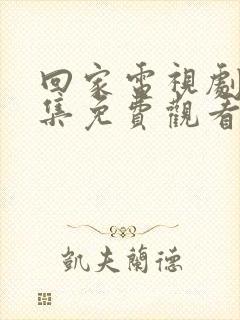 回家電視劇
集免費觀看
凱夫蘭德